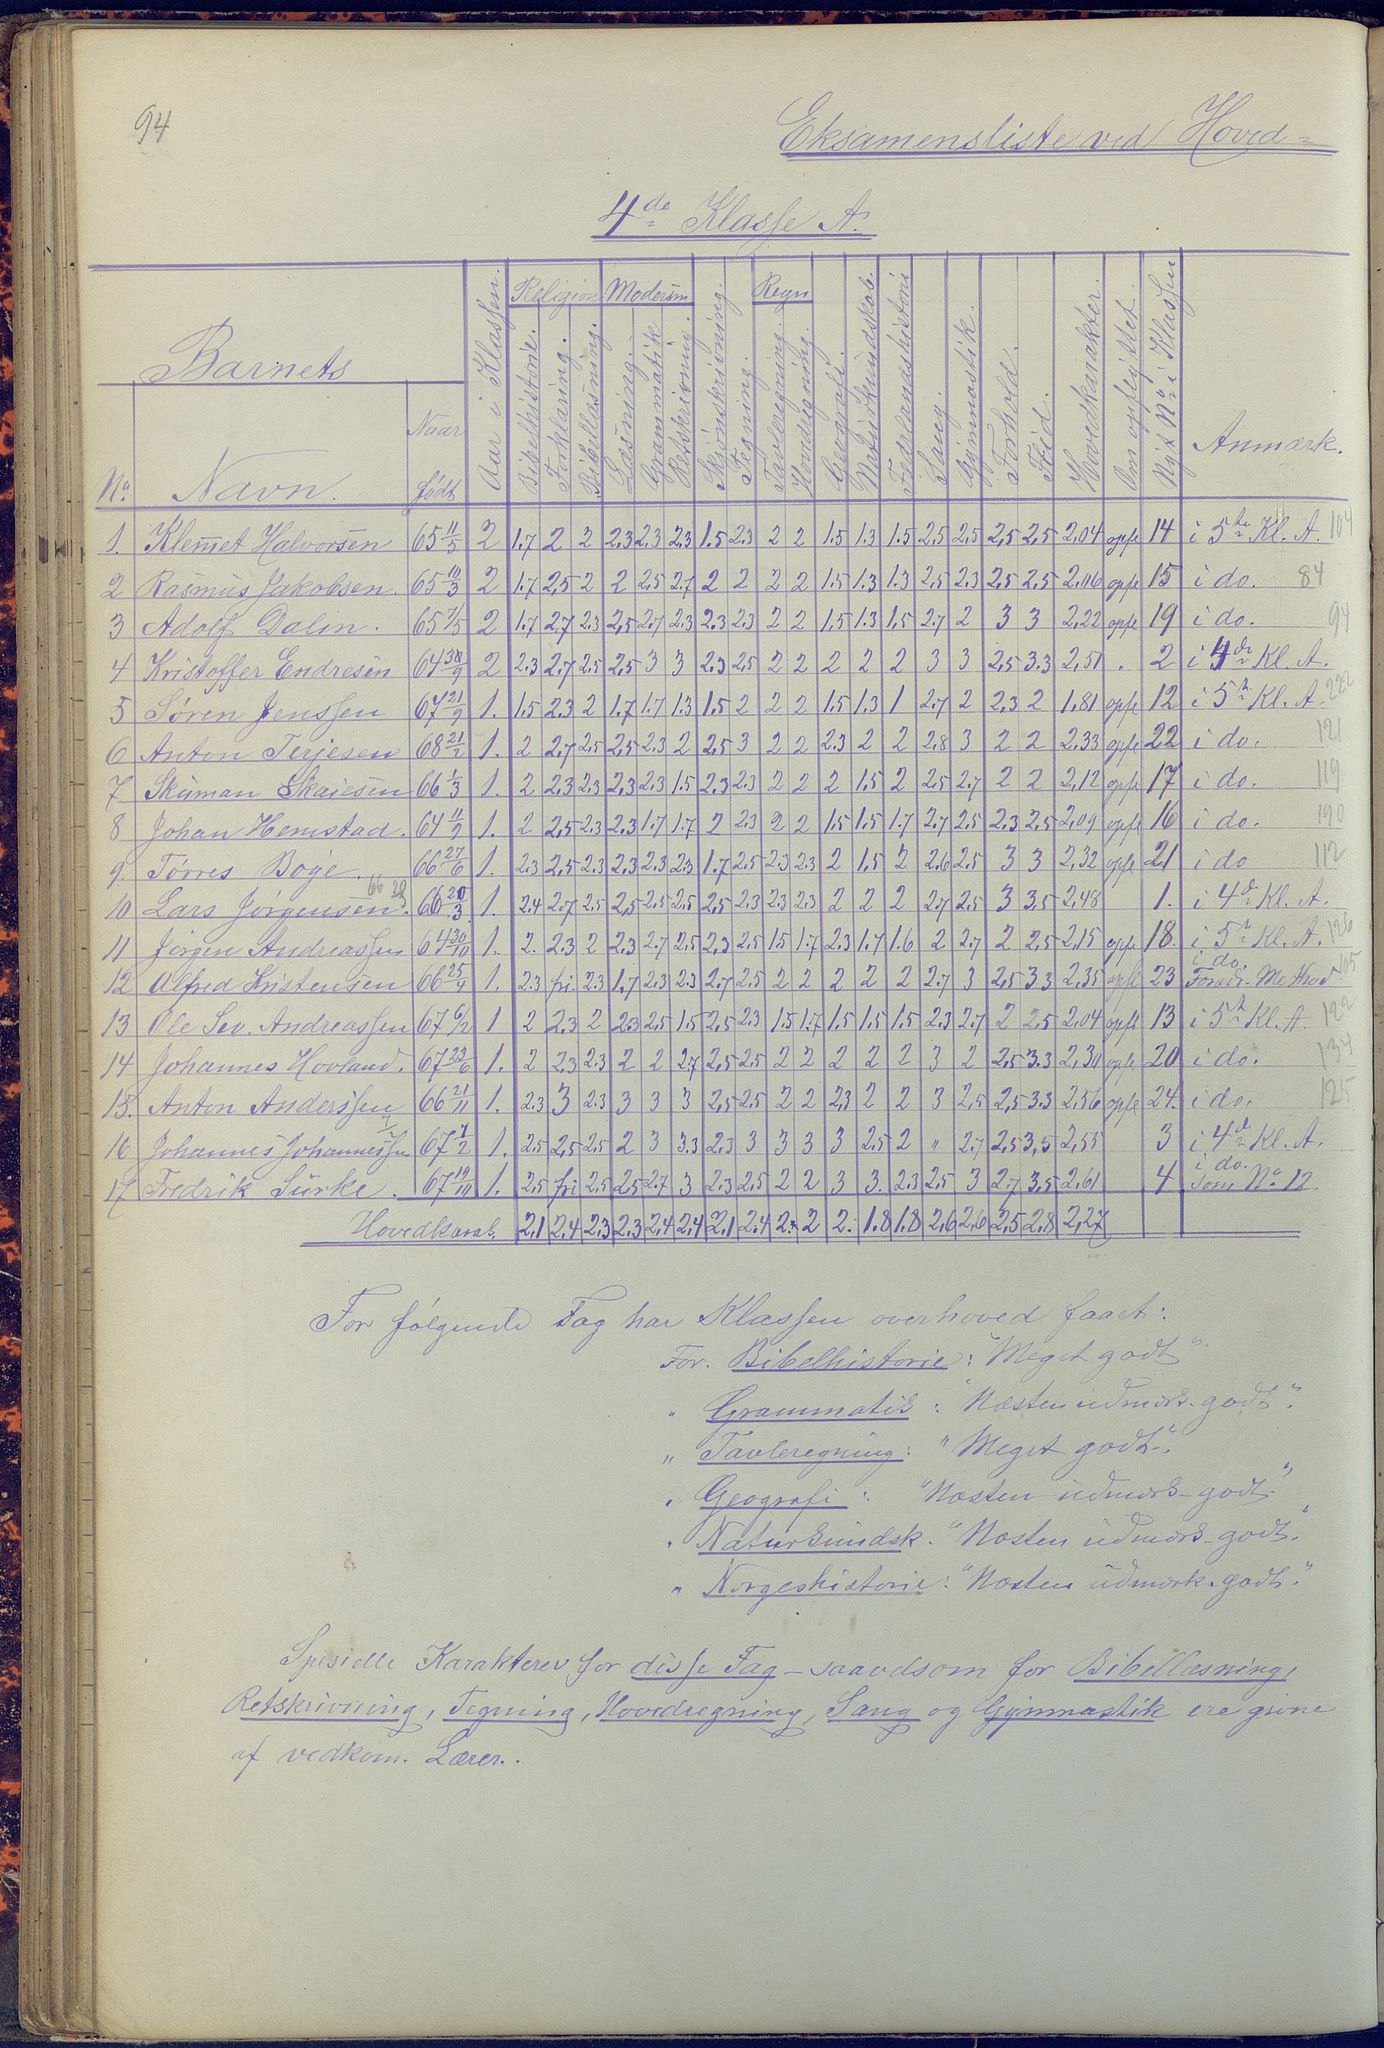 94
Eksamensliste ved Hoved=
4de Klasse A.
Religion Modersm Regn
Barnets
No. Navn. Naar født Aar i Klassen. Bibelhistorie. Forklaring. Bibellæsning. Læsning. Grammatik Retskrivning. Skjönskrivning. Tegning. Tavleregning. Hovdregning. Geografi. Naturkundskab. Fedrlandshistori Sang. Gymnastik. Forhold. Flid. Hovedkarakter. Om opflyttet. Nyt No i Klassen Anmærk.
1. Klemet Halvorsen 65 11/5 2 1.7 2 2 2,3 2,3 2,3 1.5 2.3 2 2 1.5 1.3 1.5 2,5 2,5 2,5 2,5 2,04 opfl 14 i 5te Kl. A. 104
2 Rasmus Jakobsen. 65 10/3 2 1.7 2,5 2 2 2,5 2.7 2 2 2 2 1.5 1.3 1.3 2,5 2,3 2,5 2,5 2,06 opfl 15 i do. 84
3 Adolf Dalin. 65 7/5 2 1.7 2,7 2,3 2,5 2,7 2,3 2.3 2.3 2 2 1.5 1.3 1,5 2.7 2 3 3 2,22 opfl 19 i do. 94
4 Kristoffer Endresen 64 30/9 2 2.3 2,7 2,5 2,5 3 3 2,3 2,5 2 2 2 2 2 3 3 2,5 3.3 2,51 . 2 i 4de Kl. A.
5 Søren Jenssen 67 21/9 1. 1.5 2.3 2 1.7 1.7 1.3 1.5 2 2 2 1.5 1.3 1 2.7 2 2,3 2 1,81 opfl 12 i 5te Kl. A. 222
6 Anton Terjesen 68 21/2 1. 2 2,7 2,5 2,5 2.3 2 2,5 3 2 2 2.3 2 2 2,8 3 2 2 2,33 opfl 22 i do. 121
7 Skuman Skaiesen 66 1/3 1. 2 2,3 2,3 2,3 2,3 1.5 2,3 2.3 2 2 2 1.5 2 2,5 2.7 2 2 2,12 opfl 17 i do. 119
8 Johan Hemstad. 64 11/2 1. 2 2,5 2.3 2.3 1.7 1.7 2 2.3 2 2 1.5 1.5 1.7 2.7 2.5 2.3 2.5 2,09 opfl 16 i do. 190
9. Tørres Boge. 66 27/6 1. 2.3 2,5 2,3 2.3 2.3 2.3 1.7 2.5 2.3 2.3 2 1,5 2 2.6 2.5 3 3 2,32 opfl 21 i do 112
10 Lars Jörgensen. 66 20/3 1. 2.4 2.7 2.5 2,5 2,5 2,5 2,5 2.3 2.3 2.3 2 2 2 2,7 2,5 3 3.5 2,48 1. i 4de Kl. A.
11 Jörgen Andreassen 64 30/10 1. 2. 2.3 2 2.3 2,7 2,5 2,3 2,5 1.5 1.7 2.3 1.7 1.6 2 2.7 2 2,5 2,15 opfl 18. i 5te Kl. A. 126
12 Alfred Kristensen 66 25/4 1. 2.3 fri. 2.3 1.7 2.3 2.3 2,7 2,5 2 2 2 2 2 2.7 3 2,5 3.3 2,35 opfl 23 i do. 105
13 Ole Sev. Andreassen 67 6/2 1 2 2,3 2 2.3 2,5 1.5 2,5 2.3 1.5 1.7 1.5 1.5 1.5 2.3 2.7 2 2,5 2,04 opfl 13 i 5te Kl. A. 122
14 Johannes Hovland. 67 23/6 1. 2 2,3 2.3 2 2 2.7 2,5 2,5 2 2 2 2 2 3 2 2,5 3.3 2,30 opfl 20 i do. 134
15. Anton Anderssen 66 21/11 1. 2.3 3 2.3 3 3 3 2,5 2.5 2 2 2,3 2 2 3 2,5 2,5 3.3 2,56 opfl 24. i do. 125
16 Johannes Johannessen 67 7/2 1. 2.5 2,5 2,5 2 3 3.3 2,3 3 3 3 3 2.5 2 " 2.7 2,5 3,5 2,55 3 i 4de Kl. A.
17 Fredrik Surke. 67 19/10 1. 2,5 fri 2,5 2,5 2.7 3 2.3 2,5 2 2 3 3. 2.3 2.5 3 2.7 3,5 2,61 4 i do. Som No 12.
Hovedkarak. 2,1 2,4 2,3 2,3 2,4 2,4 2,1 2,4 2. 2 2. 1.8 1.8 2,6 2,6 2,5 2,8 2,27
For følgende Fag har Klassen overhoved faaet:
For. Bibelhistorie: "Meget godt".
" Grammatik: "Næsten udmærk. godt."
" Tavleregning: "Meget godt".
" Geografi: "Næsten udmærk- godt."
" Naturkundsk. "Næsten udmærk- godt."
" Norgeshistorie: "Næsten udmærk. godt."
Spesielle Karakterer for disse Fag – saavdsom for Bibellæsning,
Retskrivning, Tegning, Hovedregning, Sang og Gymnastik ere givne
af vedkom. Lærer.